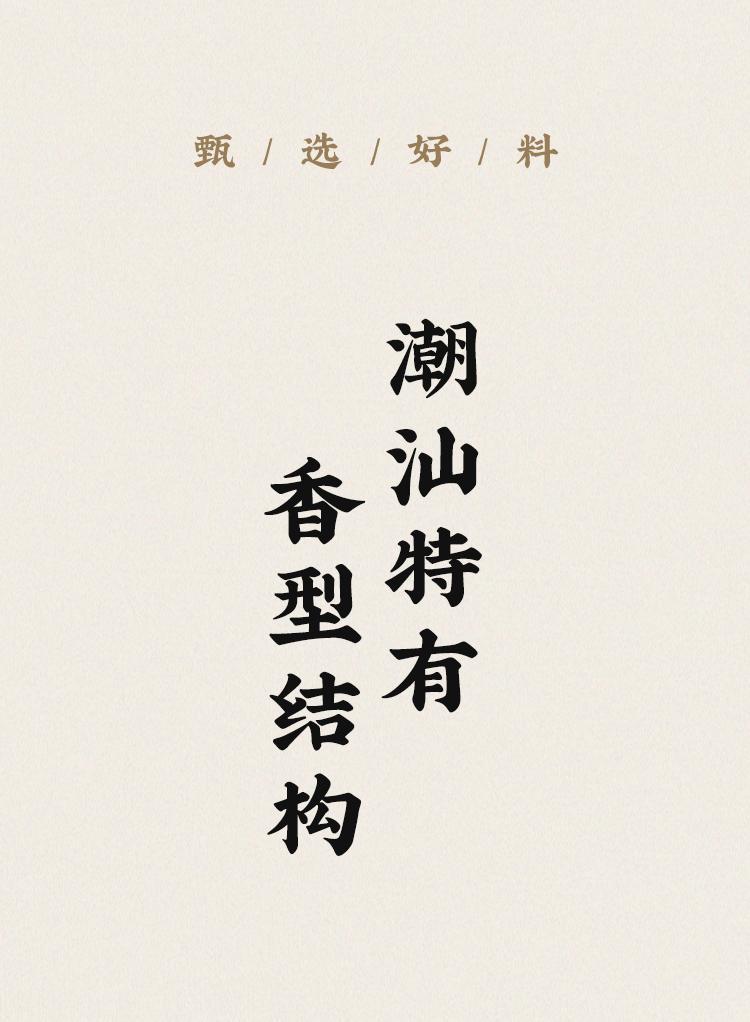 甄/选/好/料
潮汕特有
香型结构